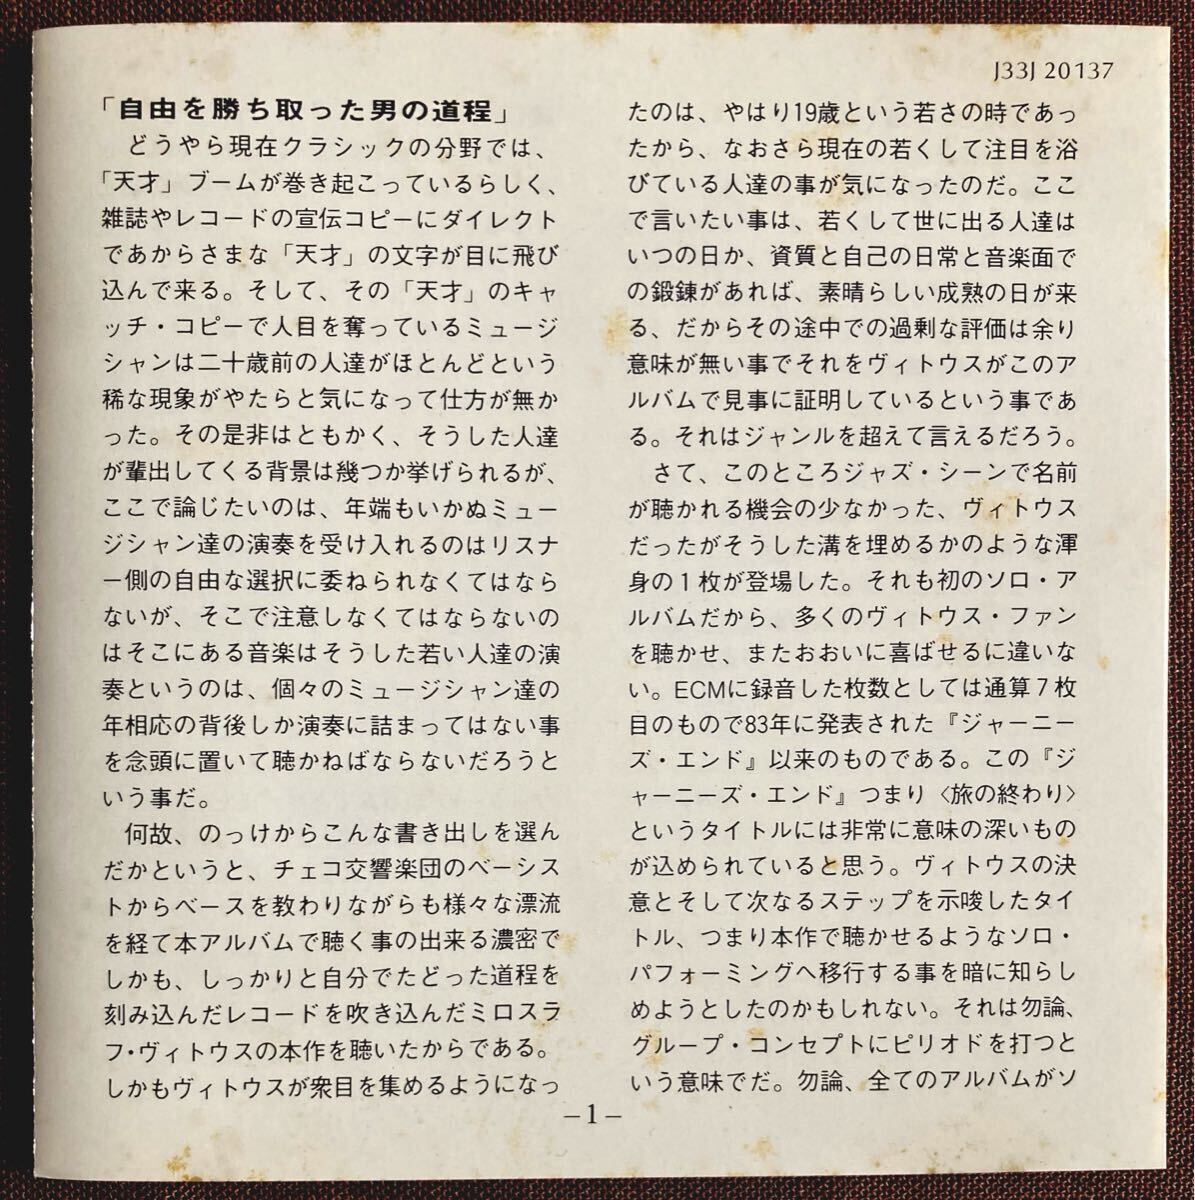 J33J 20137
「自由を勝ち取った男の道程」
どうやら現在クラシックの分野では、
「天才」ブームが巻き起こっているらしく、
雑誌やレコードの宣伝コピーにダイレクト
であからさまな「天才」の文字が目に飛び
込んで来る。そして、その「天才」のキャ
ッチ・コピーで人目を奪っているミュージ
シャンは二十歳前の人達がほとんどという
稀な現象がやたらと気になって仕方が無か
った。その是非はともかく、そうした人達
が輩出してくる背景は幾つか挙げられるが、
ここで論じたいのは、年端もいかぬミュー
ジシャン達の演奏を受け入れるのはリスナ
ー側の自由な選択に委ねられなくてはなら
ないが、そこで注意しなくてはならないの
はそこにある音楽はそうした若い人達の演
奏というのは、個々のミュージシャン達の
年相応の背後しか演奏に詰まってはない事
を念頭に置いて聴かねばならないだろうと
いう事だ。
何故、のっけからこんな書き出しを選ん
だかというと、チェコ交響楽団のベーシス
トからベースを教わりながらも様々な漂流
を経て本アルバムで聴く事の出来る濃密で
しかも、しっかりと自分でたどった道程を
刻み込んだレコードを吹き込んだミロスラ
フ・ヴィトウスの本作を聴いたからである。
しかもヴィトウスが衆目を集めるようになっ
たのは、やはり19歳という若さの時であっ
たから、なおさら現在の若くして注目を浴
びている人達の事が気になったのだ。ここ
で言いたい事は、若くして世に出る人達は
いつの日か、資質と自己の日常と音楽面で
の鍛錬があれば、素晴らしい成熟の日が来
る、だからその途中での過剰な評価は余り
意味が無い事でそれをヴィトウスがこのア
ルバムで見事に証明しているという事であ
る。それはジャンルを超えて言えるだろう。
さて、このところジャズ・シーンで名前
が聴かれる機会の少なかった、ヴィトウス
だったがそうした溝を埋めるかのような渾
身の1枚が登場した。それも初のソロ・ア
ルバムだから、多くのヴィトウス・ファン
を聴かせ、またおおいに喜ばせるに違いな
い。ECMに録音した枚数としては通算7枚
目のもので83年に発表された『ジャーニー
ズ・エンド』以来のものである。この『ジ
ャーニーズ・エンド』つまり〈旅の終わり〉
というタイトルには非常に意味の深いもの
が込められていると思う。ヴィトウスの決
意とそして次なるステップを示唆したタイ
トル、つまり本作で聴かせるようなソロ・
パフォーミングへ移行する事を暗に知らし
めようとしたのかもしれない。それは勿論、
グループ・コンセプトにピリオドを打つと
いう意味でだ。勿論、全てのアルバムがソ
–1–